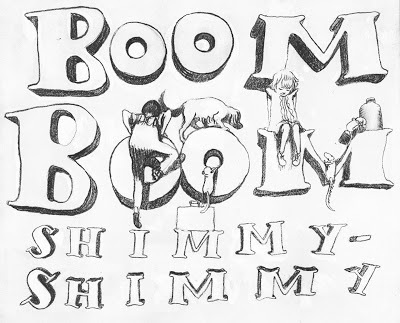 BOOM
BOOM
SHIMMY-
SHIMMY